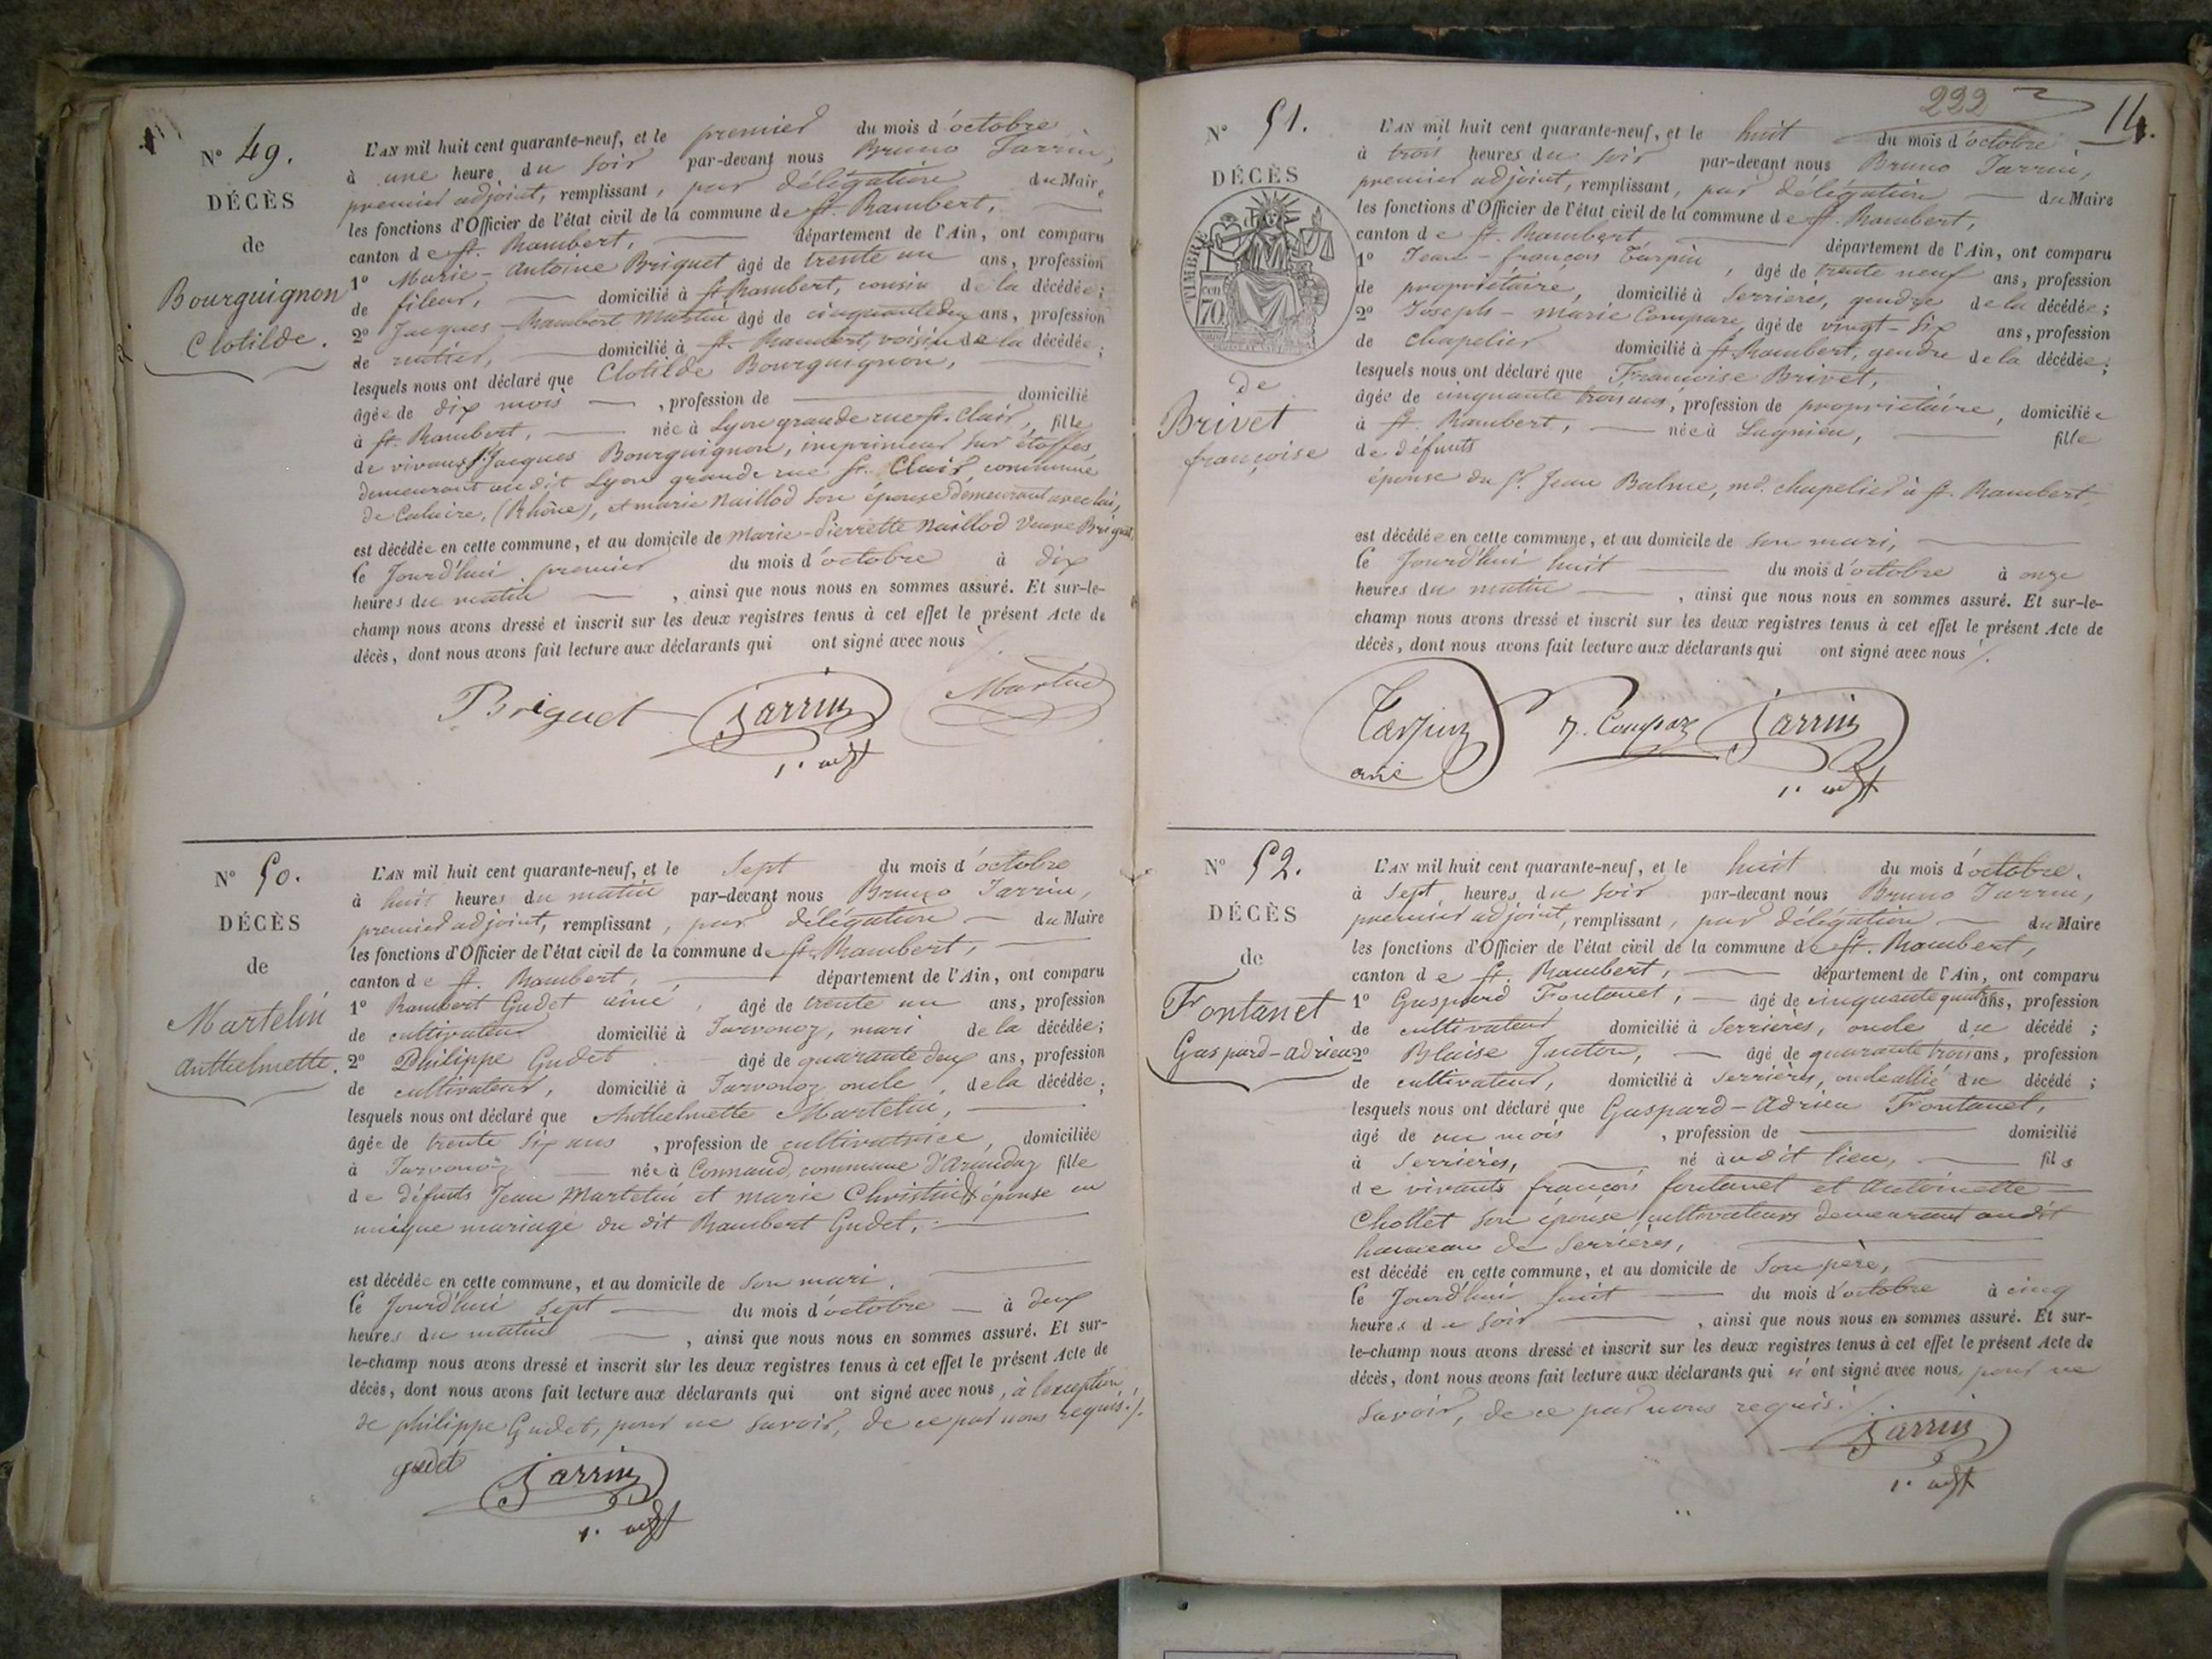 N.º 49.
DÉCÈS
de
Bourguignon
Clotilde.
L'AN mil huit cent quarante-neuf, et le premier du mois d'octobre
à une heure du soir par-devant nous Bruno Jarrin,
premier adjoint, remplissant, par délégation du Maire
les fonctions d'Officier de l'état civil de la commune de St. Rambert,
canton de St. Rambert, département de l'Ain, ont comparu
1º Marie-Antoine Briguet âgé de trente un ans, profession
de fileur, domicilié à St Rambert, cousin de la décédée;
2º Jacques-Rambert Martin âgé de cinquante deux ans, profession
de domicilié à St. Rambert, voisin de la décédée;
lesquels nous ont déclaré que Clotilde Bourguignon,
âgée de dix mois, profession de domicilié
à St. Rambert, née à Lyon grande rue St. Clair, fille
de vivants Sr. Jacques Bourguignon, imprimeur sur étoffes,
demeurant audit Lyon grande rue St. Clair, commune
de Caluire, (Rhône), et marie Naillod son épouse demeurant avec lui,
est décédée en cette commune, et au domicile de Marie-Pierrette Naillod veuve Briguet,
le Jourd'hui premier du mois d'octobre à dix
heures du matin, ainsi que nous nous en sommes assuré. Et sur-le-
champ nous avons dressé et inscrit sur les deux registres tenus à cet effet le présent Acte de
décès, dont nous avons fait lecture aux déclarants qui ont signé avec nous /.
Briguet Jarrin Martin
1. adjt
N.º 50.
DÉCÈS
de
Martelin
Anthelmette.
L'AN mil huit cent quarante-neuf, et le Sept du mois d'octobre
à huit heures du matin par-devant nous Bruno Jarrin,
premier adjoint, remplissant, par délégation du Maire
les fonctions d'Officier de l'état civil de la commune de St. Rambert,
canton de St. Rambert, département de l'Ain, ont comparu
1º Rambert Gudet aîné, âgé de trente un ans, profession
de cultivateur domicilié à Javornoz, mari de la décédée;
2º Philippe Gudet âgé de quarante deux ans, profession
de cultivateur, domicilié à Javornoz oncle, de la décédée;
lesquels nous ont déclaré que Anthelmette Martelin,
âgée de trente six ans, profession de cultivatrice, domiciliée
à Javornoz née à Connand, commune d'Arandaz fille
de défunts Jean Martelin et marie Christin, épouse en
unique mariage du dit Rambert Gudet,
est décédée en cette commune, et au domicile de son mari,
le Jourd'hui sept du mois d'octobre à deux
heures du matin, ainsi que nous nous en sommes assuré. Et sur-
le-champ nous avons dressé et inscrit sur les deux registres tenus à cet effet le présent Acte de
décès, dont nous avons fait lecture aux déclarants qui ont signé avec nous, à l'exception
de philippe Gudet, pour ne savoir, de ce par nous requis./.
gudet Jarrin
1. adjt
222
14.
N.º 51.
DÉCÈS
TIMBRE
70 cen
de
Brivet
françoise
L'AN mil huit cent quarante-neuf, et le huit du mois d'octobre
à trois heures du soir par-devant nous Bruno Jarrin,
premier adjoint, remplissant, par délégation du Maire
les fonctions d'Officier de l'état civil de la commune de St. Rambert,
canton de St. Rambert département de l'Ain, ont comparu
1º Jean-françois Tarpin, âgé de trente neuf ans, profession
de propriétaire, domicilié à Serrieres, gendre de la décédée;
2º Joseph-marie Compare, âgé de vingt-six ans, profession
de chapelier domicilié à St. Rambert, gendre de la décédée;
lesquels nous ont déclaré que Françoise Brivet,
âgée de cinquante trois ans, profession de propriétaire, domiciliée
à St. Rambert, née à Lagnieu, fille
de défunts
épouse du Sr. Jean Balme, md. chapelier à St. Rambert,
est décédée en cette commune, et au domicile de son mari,
le Jourd'hui huit du mois d'octobre à onze
heures du matin, ainsi que nous nous en sommes assuré. Et sur-le-
champ nous avons dressé et inscrit sur les deux registres tenus à cet effet le présent Acte de
décès, dont nous avons fait lecture aux déclarants qui ont signé avec nous /.
Tarpin J. Compar Jarrin
ané 1. adjt
N.º 52.
DÉCÈS
de
Fontanet
Gaspard-adrien
L'AN mil huit cent quarante-neuf, et le huit du mois d'octobre.
à Sept heures du soir par-devant nous Bruno Jarrin,
premier adjoint, remplissant, par délégation du Maire
les fonctions d'Officier de l'état civil de la commune de St. Rambert,
canton de St. Rambert, département de l'Ain, ont comparu
1º Gaspard Fontanet, âgé de cinquante quatre ans, profession
de cultivateur domicilié à Serrières, oncle du décédé;
2º Blaise Janton, âgé de quarante trois ans, profession
de cultivateur, domicilié à Serrières, oncle allié du décédé;
lesquels nous ont déclaré que Gaspard-Adrien Fontanet,
âgé de un mois, profession de domicilié
à Serrières, né audit lieu, fils
de vivants françois fontanet et Antoinette
Chollet son épouse, cultivateurs demeurant audit
hameau de Serrières,
est décédé en cette commune, et au domicile de Son père,
le Jourd'hui huit du mois d'octobre à cinq
heures du soir, ainsi que nous nous en sommes assuré. Et sur-
le-champ nous avons dressé et inscrit sur les deux registres tenus à cet effet le présent Acte de
décès, dont nous avons fait lecture aux déclarants qui n'ont signé avec nous, pour ne
savoir, de ce par nous requis./.
Jarrin
1. adjt